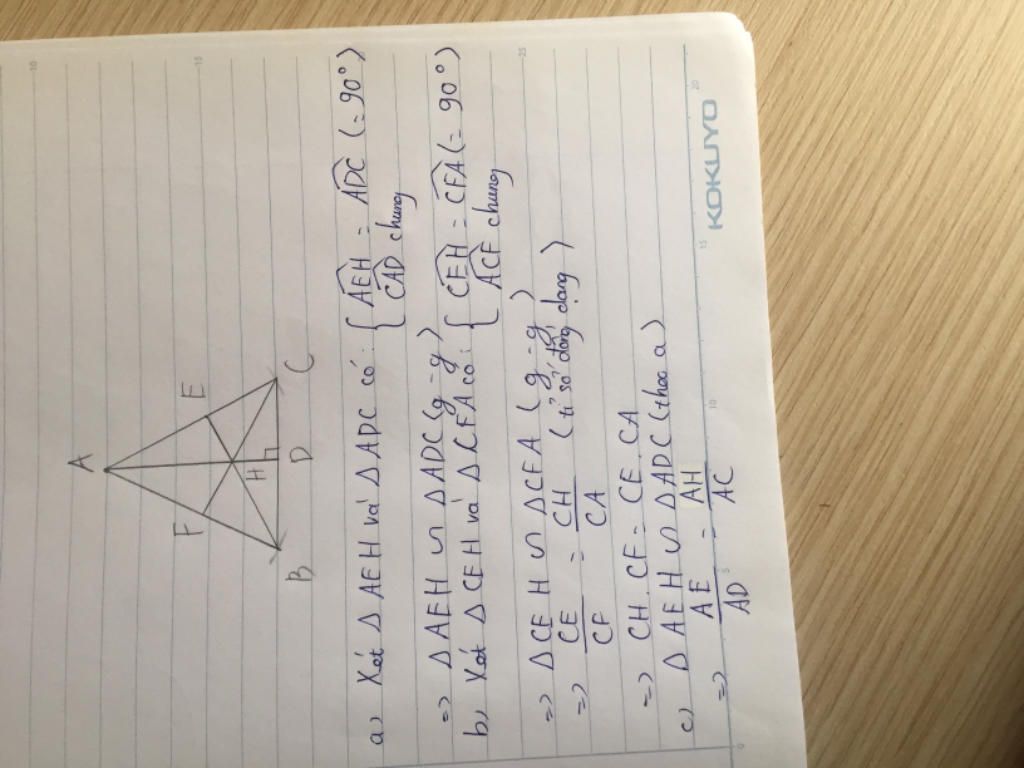 A
F
E
H
B
D
C
a) Xét Δ AEH và Δ ADC có: { AEH = ADC (= 90°)
CAD chung
=> Δ AEH ∽ Δ ADC (g-g)
b) Xét Δ CEH và Δ CFA có: { CEH = CFA (= 90°)
ACF chung
=> Δ CEH ∽ Δ CFA (g-g)
=> CE/CF = CH/CA (tỉ số đồng dạng)
=> CH. CF = CE. CA
c) Δ AEH ∽ Δ ADC (theo a)
=> AE/AD = AH/AC
KOKUYO
5
10
15
20
10
15
25